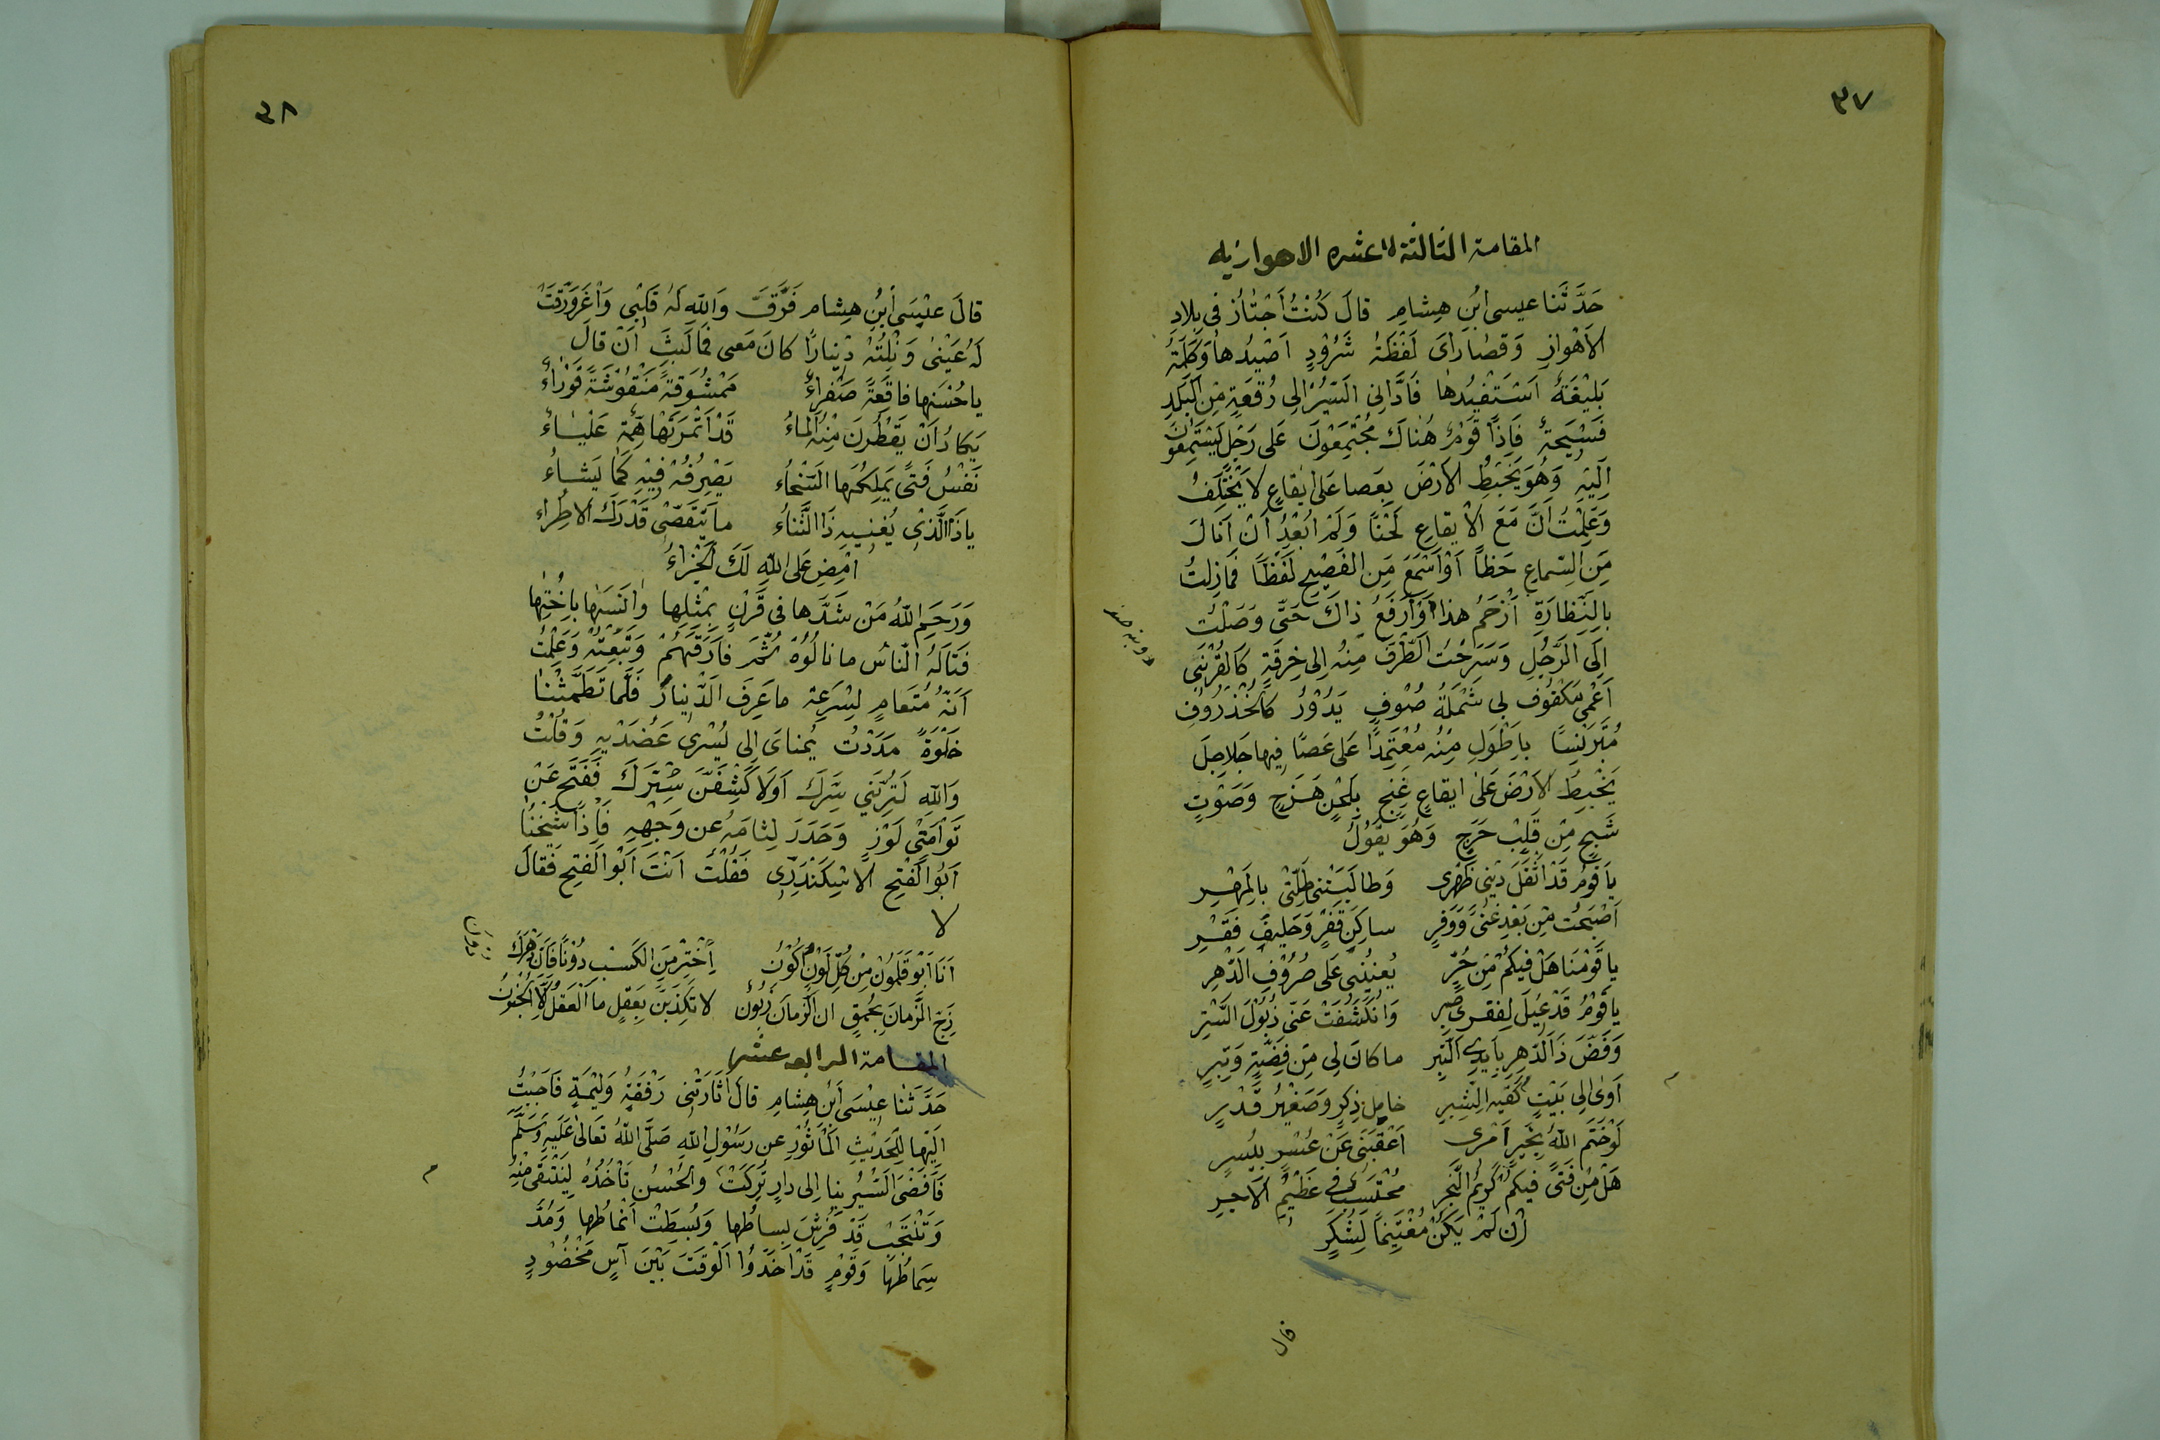 ٣٧
المقامة الثالثة عشره الاهوازيه
حَدَّثَنا عيسى ابْنِ هِشامٍ قالَ كُنْتُ أَجْتازُ فى بِلادِ
الاَهْوازِ وَقُصاراىَ لَفْظَةُ شَرُوْدٍ اَصْيُدُها وَكَلِمَةُ
بَلِيْغَةُ اَسْتَفْيِدُها فَادَّانِى السَّيْرُ اِلى رُقْعَةٍ مِنَ البَلَدِ
فَسْيْحَةٍ فَاِذًا قَوْمٌ هُناكَ مُجْتَمِعُوْنَ عَلى رَجُلٍ يَسْتَمِعُوْنَ
اِلَيْهِ وَهُوَ يَخْبِطُ الاَرْضَ بِعَصا عَلى ايقاعٍ لا يَخْتَلِفُ
وَعَلِمْتُ اَنَّ مَعَ الاْيقاعِ لَحْنًا وَلَمْ اُبْعِدُ اَنْ اَنالَ
مِنَ السَّماعِ حَظًّا اَوْ اَسْمَعَ مِنَ الفَصِيْحِ لَفْظًا فَمازِلْتُ
بِالنِّظارَةِ اَزْحَمُ هذا وَاَرْفَعُ ذاكَ حَتّى وَصَلْتُ
اِلَى الرَّجُلِ وَسَرَحْتُ الطَّرْفَ مِنْهُ اِلى خِرِقَةٍ كَالقُرْنَبى
اَعْمى مَكْفُوْفٍ لى شَمْلَةُ صُوْفٍ يَدُوْرُ كَالخُذْرُوْفِ
مُتَبَرْنِسًا باِطْوَلِ مِنْهُ مُعْتَمِدًا عَلى عَصًا فِيها جَلاجِلَ
يَخْبِطُ الاَرْضَ عَلى ايقاعٍ غَنِجٍ بِلَحْنٍ هَزَجٍ وَصَوْتٍ
شَجٍ مِنْ قَلْبٍ حَرَجٍ وَهُوَ يَقُوْلُ
يا قَوْمُ قَدْ اَثْقَلَ دَيْنى ظَهْرى وَطالَبَتْنى طَلَّتْى بِالمَهْرِ
اَصْبَحْتُ مِنْ بَعْدِ غِنىً وَوَفْرٍ ساكِنَ قَفْرٍ وَحَلِيْفَ فَقْرِ
يا قَوْمَنا هَلْ فيكُمْ مِنْ حُرٍّ يُعْيْنُنِى عَلى صُرُوْفِ الدَّهْرِ
يا قَوْمُ قَدْ عيْلَ لِفَقْرى صَبِر وَانْكَشَفَتْ عَنّى ذُيُوْلُ السَّتِر
وَفَضَّ ذَا الدَّهْرِ بِاَيْدِى البَتِر ما كانَ لى مِنْ فِضَّةٍ وَتِبرٍ
اَوى اِلى بَيْتٍ كَقَيْدِ الشِّبِر خامِلَ ذِكرٍ وَصَغْيْرَ قَدْرٍ
لَوْ خَتَمَ اللهُ بِخَيْرٍ اَمْرى اَعْقَبَنِى عَنْ عُسْرٍ بِيُسرٍ
هَلْ مِنْ فَتًى فيكُمْ كَرْيمُ النَّجْر مُحْتَسِبٌ فى عَظِيْمِ الاَجِر
اِنْ لَمْ يَكُنْ مُغْتَنِمًا لِلشُّكِرِ
قال
٣٨
قالَ عيْسَى اْبنُ هِشامٍ فَرَّقَ وَاللهِ لَهُ قَلْبِى وَاغْرَوْرَقَتْ
لَهُ عَيْنى وَنُلْتُهُ دْينارًا كانَ مَعى فَما لَبِثَ اَنْ قالَ
يا حُسْنَها فاقِعَةٌ صَفْراءُ مَمْشُوْقَةُ مَنْقُوْشَةُ قَوْراءُ
يَكادُ اَنْ يَقْطُرَنَ مِنْهُ الماءُ قَدْ اَثْمَرَتْها هِمَّةُ عَلْياءُ
نَفْسُ فَتىً يَمْلِكُهَا السَّخاءُ يَصْرِفُهُ فِيْهِ كَما يَشاءُ
ياذَا الَّذِى يُغْنِيهِ ذَا الثَّناءُ ما يَتَقَصّى قَدْرَكَ الاِطْراء
اَمْضِ عَلَى اللهِ لَكَ الجَزاءُ
وَرَحِمَ اللهُ مَنْ شَدَّها فى قَرْنٍ بِمِثْلِها وَانَسَها بِاُخْتِها
فَنَالَهُ النّاسُ ما نالُوْهُ ثُمَّ فارَقَهُمْ وَتَبِعْتُهُ وَعَلِمْتُ
اَنَّهُ مُتَعامٍ لِسْرعَةِ ما عَرِفَ الدَّيْنارَ فَلَمّا نَظَمَتْنا
خَلْوَةٌ مَدَدْتُ يُمْناىَ اِلى يُسْرى عَضُدَيْهِ وَقُلْتُ
وَاللهِ لَتُرِيَنّى سَرَكَ اَوَلاَكْشِفَنَّ سِتْرَكَ فَفَتَحَ عَنْ
تَوْأَمَتَى لَوْزٍ وَحَدَرَ لِثامَهُ عَن وَجْهِهِ فَاِذًا شَيْخُنا
اَبُوْالفَتْحِ الاِسْكَنْدَرِى فَقُلْتُ اَنْتَ اَبُوْالفَتْحِ فَقالَ
لا
اَنا اَبُوْ قَلَمُوْنَ مِنْ كُلِّ لَوْنٍ اَكُوْن اِخْتَرْ مِنَ الكَسْبِ دُوْنًا فَاِنَّ دَهْرَكَ دُوْنُ
زَجِّ الزَّمانَ بِحُمْقٍ ان الزَّمانَ زَبُوْن لا تَكْذِبَنَّ بِعَقِلٍ ما العَقْلُ اِلاَّ الجُنُونُ
المقامة الرابعه عشر
حَدَّثَنا عيْسَى اْبنُ هِشامٍ قالَ اَثارَتْنى رَفْقَةٍ وَلِيْمَةٍ فَاَجَبْتُ
اِلَيْها لِلحَديْثِ المَأثُوْرِ عن رَسُوْلِ اللهِ صَلَّى اللهُ تَعَالى عَلَيْهِ وَسَلَّمَ
فَاَفْضى السَّيْرُ بِنا اِلى دارٍ تُرِكَتْ وَالْحُسْنُ تَأْخُذُهُ لِيَنْتَقى مِنْهُ
وَتَنْتَخِبُ قَدْ فُرِشَ بِساطُها وَبُسِطَتْ اَنْماطُها وَمُدَّ
سِماطُها وَقَوْمٍ قَدْ اَخَذُوْا الوَقْتَ بَيْنَ آسٍ مَخْضُوْدٍ